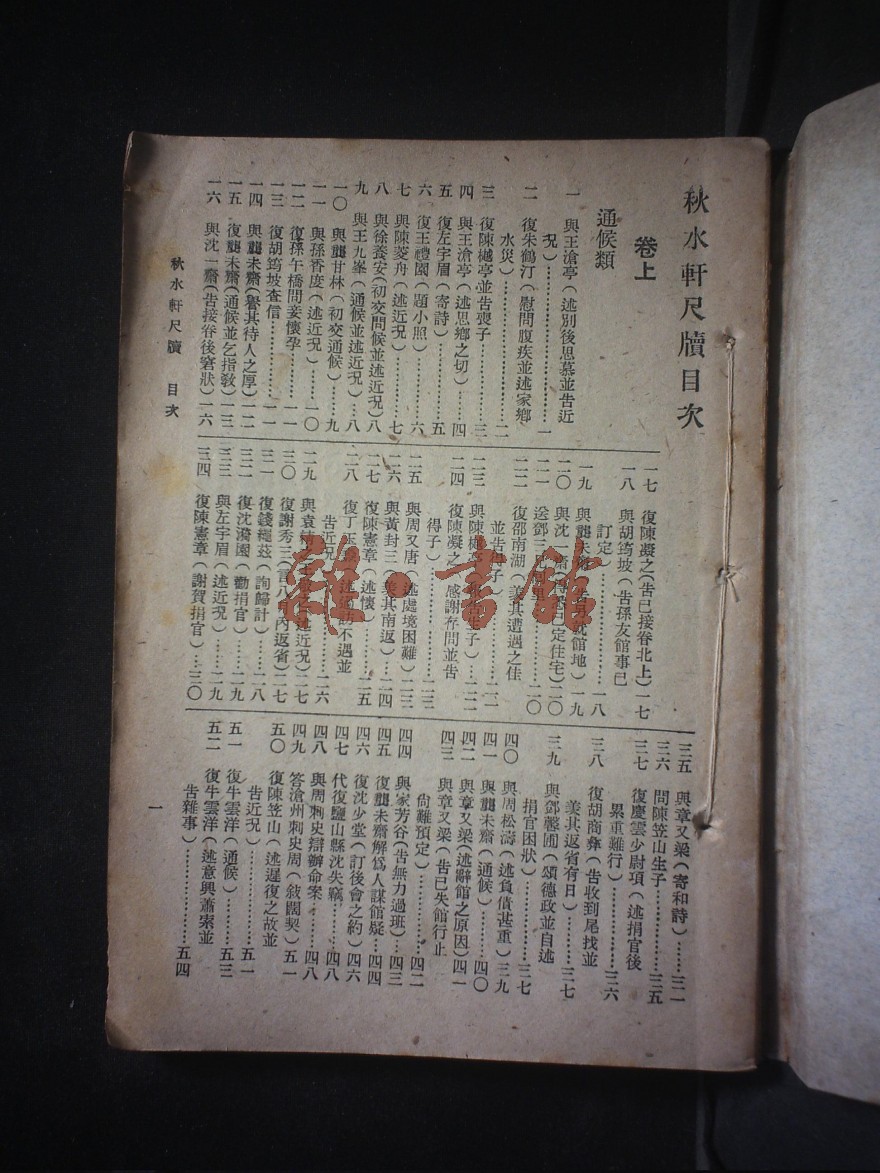 秋水軒尺牘目次
卷上
通候類
一 與王滄亭(述別後思慕並告近
況)………一
二 復朱鶴汀(慰問腹疾並述家鄉
水災)………二
三 復陳樾亭並告喪子………三
四 與王滄亭(述思鄉之切)……四
五 復左宇眉(寄詩)………五
六 復王禮園(題小照)………六
七 與陳菱舟(述近況)………七
八 與徐養安(初交問候並述近況)八
九 與王九峯(通候並述近況)…八
一〇 與龔甘林(初交通候)……九
一一 與孫香度(述近況)……一〇
一二 復孫午橋問妾懷孕………一一
一三 復胡筠坡查信………一一
一四 與龔未齋(譽其待人之厚)一二
一五 復龔未齋(通候並乞指教)一三
一六 與沈一齋(告接眷後窘狀)一六
一七 復陳凝之(告已接眷北上)一七
一八 與胡筠坡(告孫友館事已
訂定)………一八
一九 與龔未齋 就館地)一九
二〇 與沈一齋 已定住宅)二〇
二一 送鄧三 ……二〇
二二 復邵南湖(羨其遭遇之佳
並告 子)………二一
二三 與陳樾亭 子)……二二
二四 復陳凝之(感謝存問並告
得子)………二三
二五 與周又唐(述處境困難)二三
二六 與黃封三 羨其南返)…二四
二七 復陳憲章(述懷)………二五
二八 復丁 述 不遇並
告近況)………二六
二九 與袁 述近況)二七
三〇 復謝秀三(言八 內返省)二七
三一 復錢繩茲(詢歸計)……二八
三二 復沈漪園(勸捐官)……二九
三三 與左宇眉(述近況)……二九
三四 復陳憲章(謝賀捐官)……三〇
三五 與章又梁(寄和詩)……三二
三六 問陳笠山生子………三五
三七 復慶雲少尉項(述捐官後
累重難行)………三六
三八 復胡商彝(告收到尾找並
羨其返省有日)………三七
三九 與鄧馨圃(頌德政並自述
捐官困狀)………三七
四〇 與周松濤(述負債甚重)三九
四一 與龔未齋(通候)………四〇
四二 與章又梁(述辭館之原因)四一
四三 與章又梁(告已失館行止
尙難預定)………四二
四四 與家芳谷(告無力過班)…四三
四五 復龔未齋解爲人謀館疑…四四
四六 復沈少堂(訂後會之約)四六
四七 代復鹽山縣沈失竊………四八
四八 與周刺史辯辦命案………四八
四九 答滄州刺史周(敍闊契)五一
五〇 復陳笠山(述遲復之故並
告近況)………五一
五一 復牛雲洋(通候)………五三
五二 復牛雲洋(述意興蕭索並
告雜事)………五四
秋水軒尺牘 目次
一
雜·書館